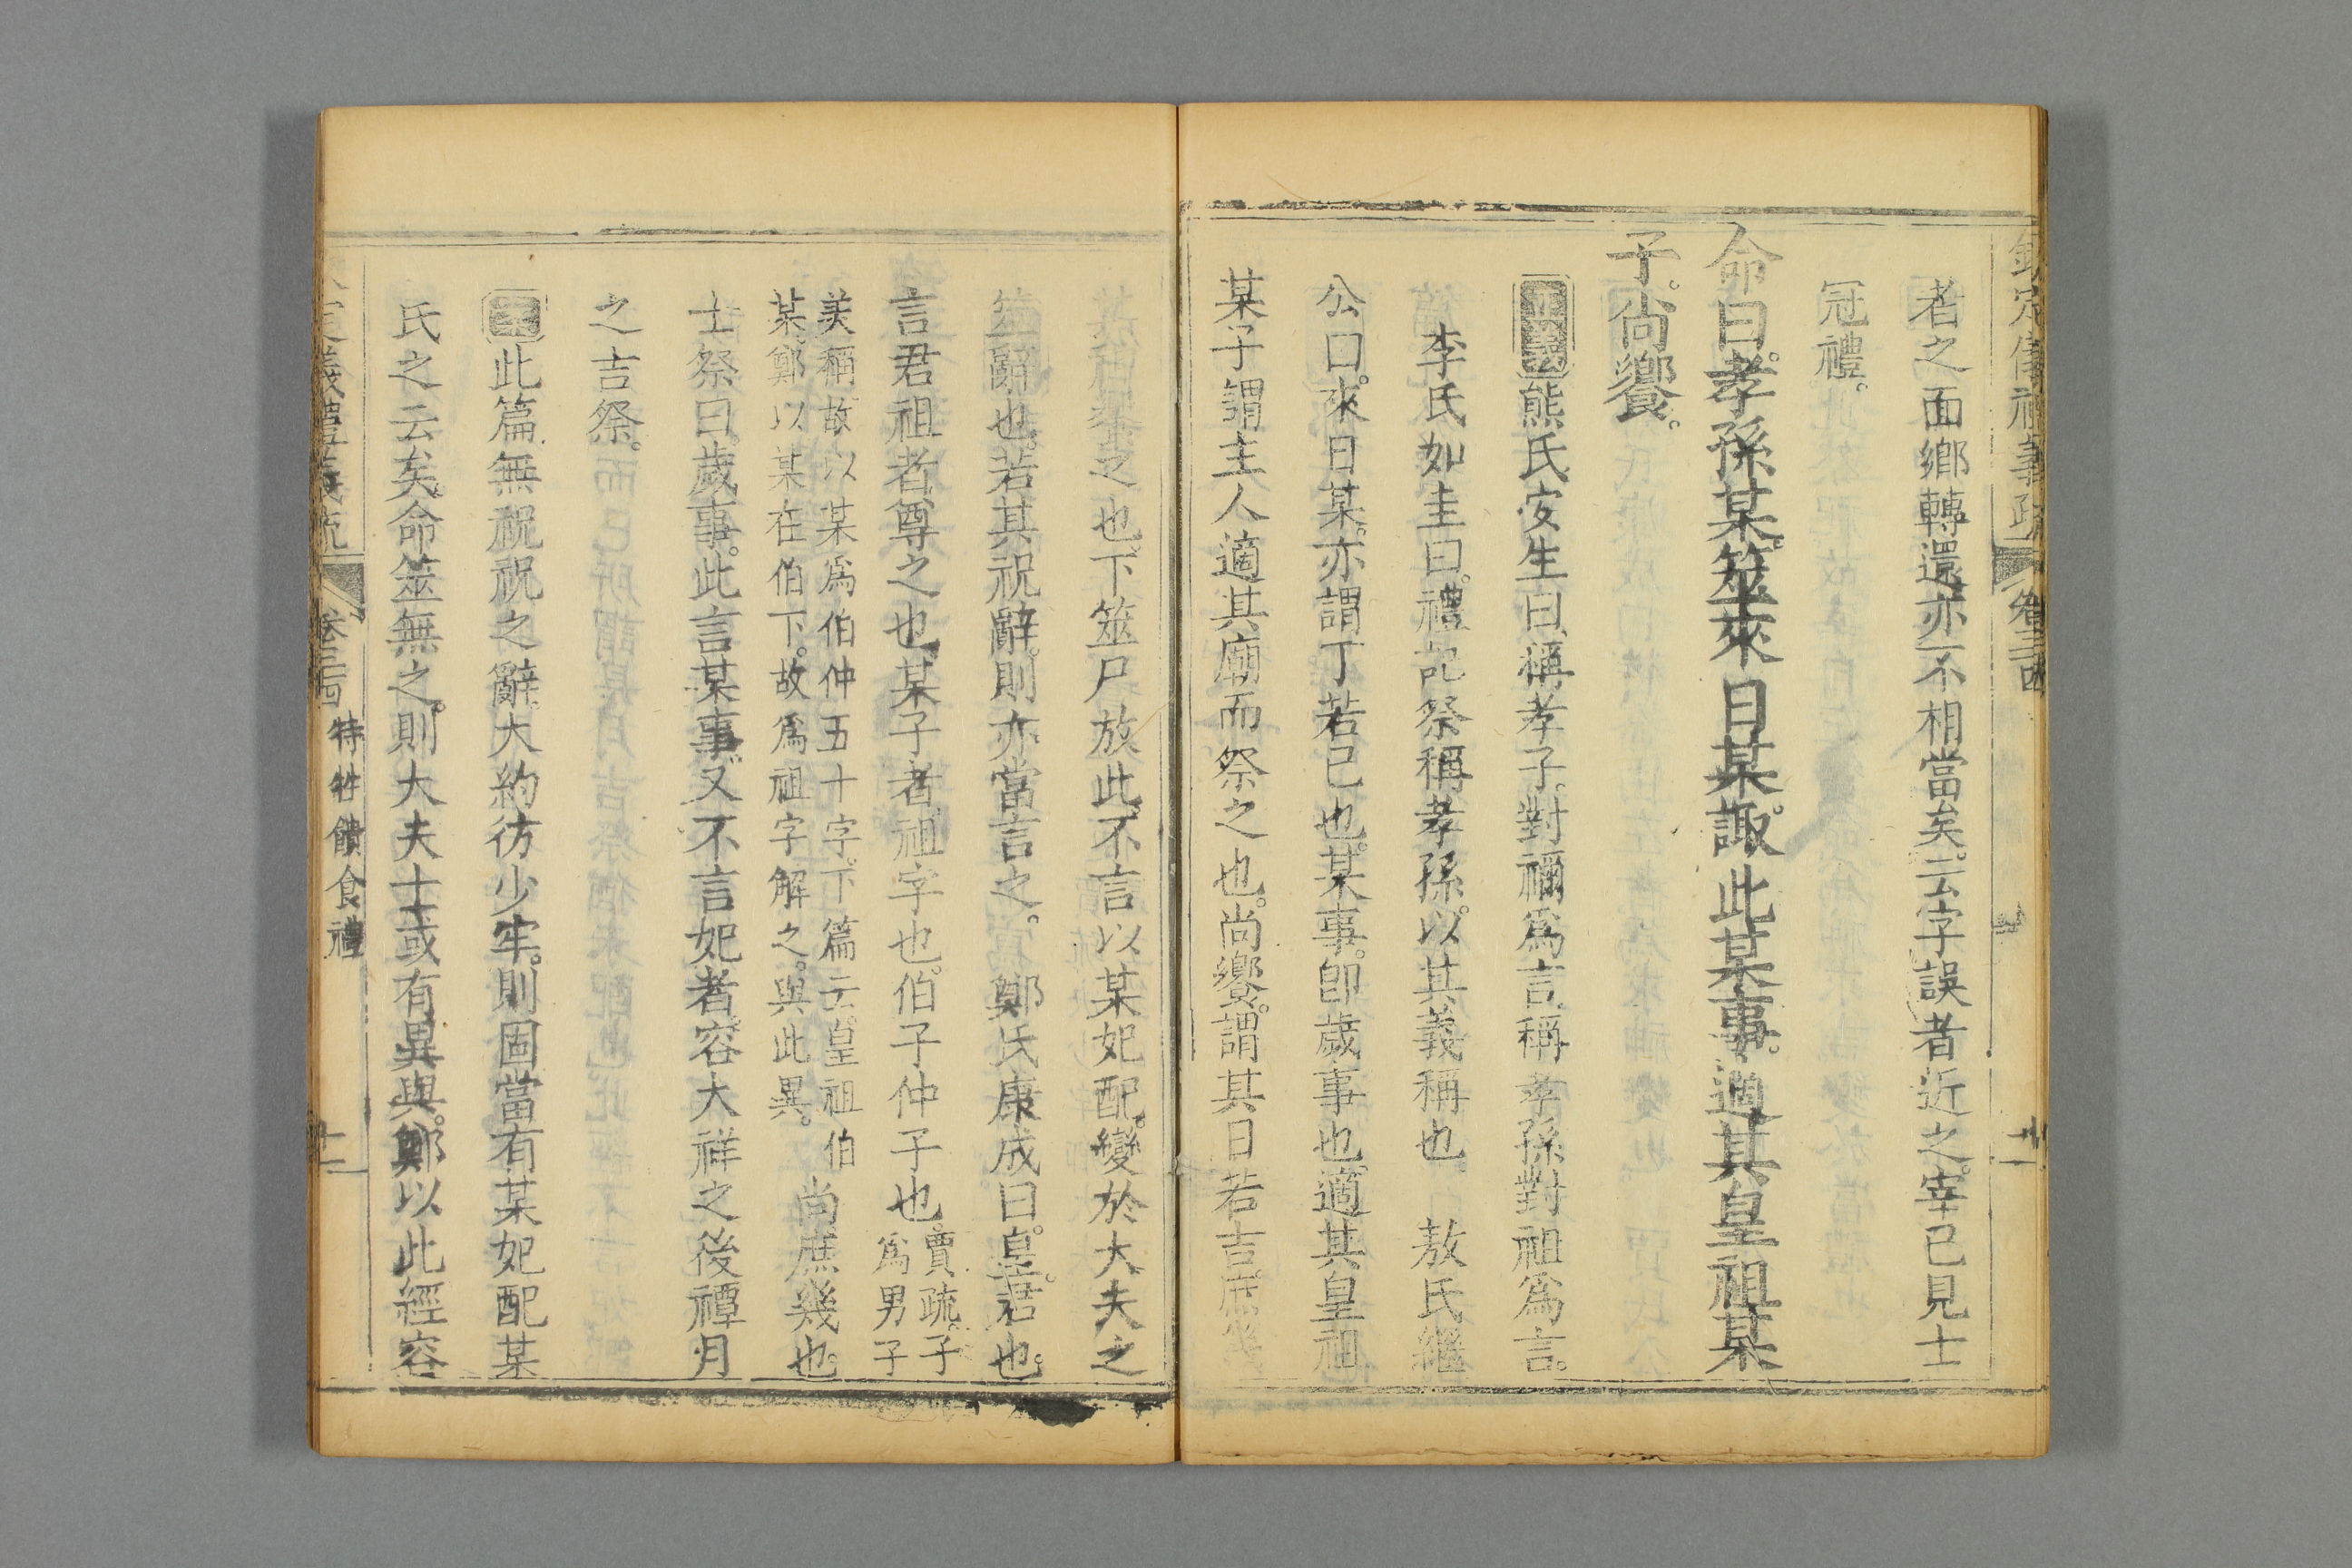 欽定儀禮義疏 卷三十四
者之面鄉轉還亦不相當矣。云字誤者近之。宰已見士
冠禮。
命曰。孝孫某。筮來日某。諏此某事。適其皇祖某
子。尚饗。
正義熊氏安生曰。稱孝子。對禰爲言。稱孝孫對祖爲言。
李氏如圭曰。禮記祭稱孝孫。以其義稱也 敖氏繼
公曰。來日某。亦謂丁若己也。某事。卽歲事也。適其皇祖
某子。謂主人適其廟而祭之也。尚饗。謂其日若吉。庶幾
之也。下筮尸放此。不言以某妃配。變於大夫之
筮辭也。若其祝辭。則亦當言之。 鄭氏康成曰。皇。君也。
言君祖者。尊之也。某子者。祖字也。伯子仲子也。賈疏。子爲男子
美稱。故以某爲伯仲五十字。下篇云。皇祖伯某。鄭以某在伯下。故爲祖字解之。與此異。 尚。庶幾也。
士祭曰歲事。此言某事。又不言妃者。容大祥之後。禫月
之吉祭。
此篇無祝祝之辭。大約彷少牢。則固當有某妃配某
氏之云矣。命筮無之。則大夫士或有異與。鄭以此經容
儀禮義疏 卷三十四 特牲饋食禮 十一